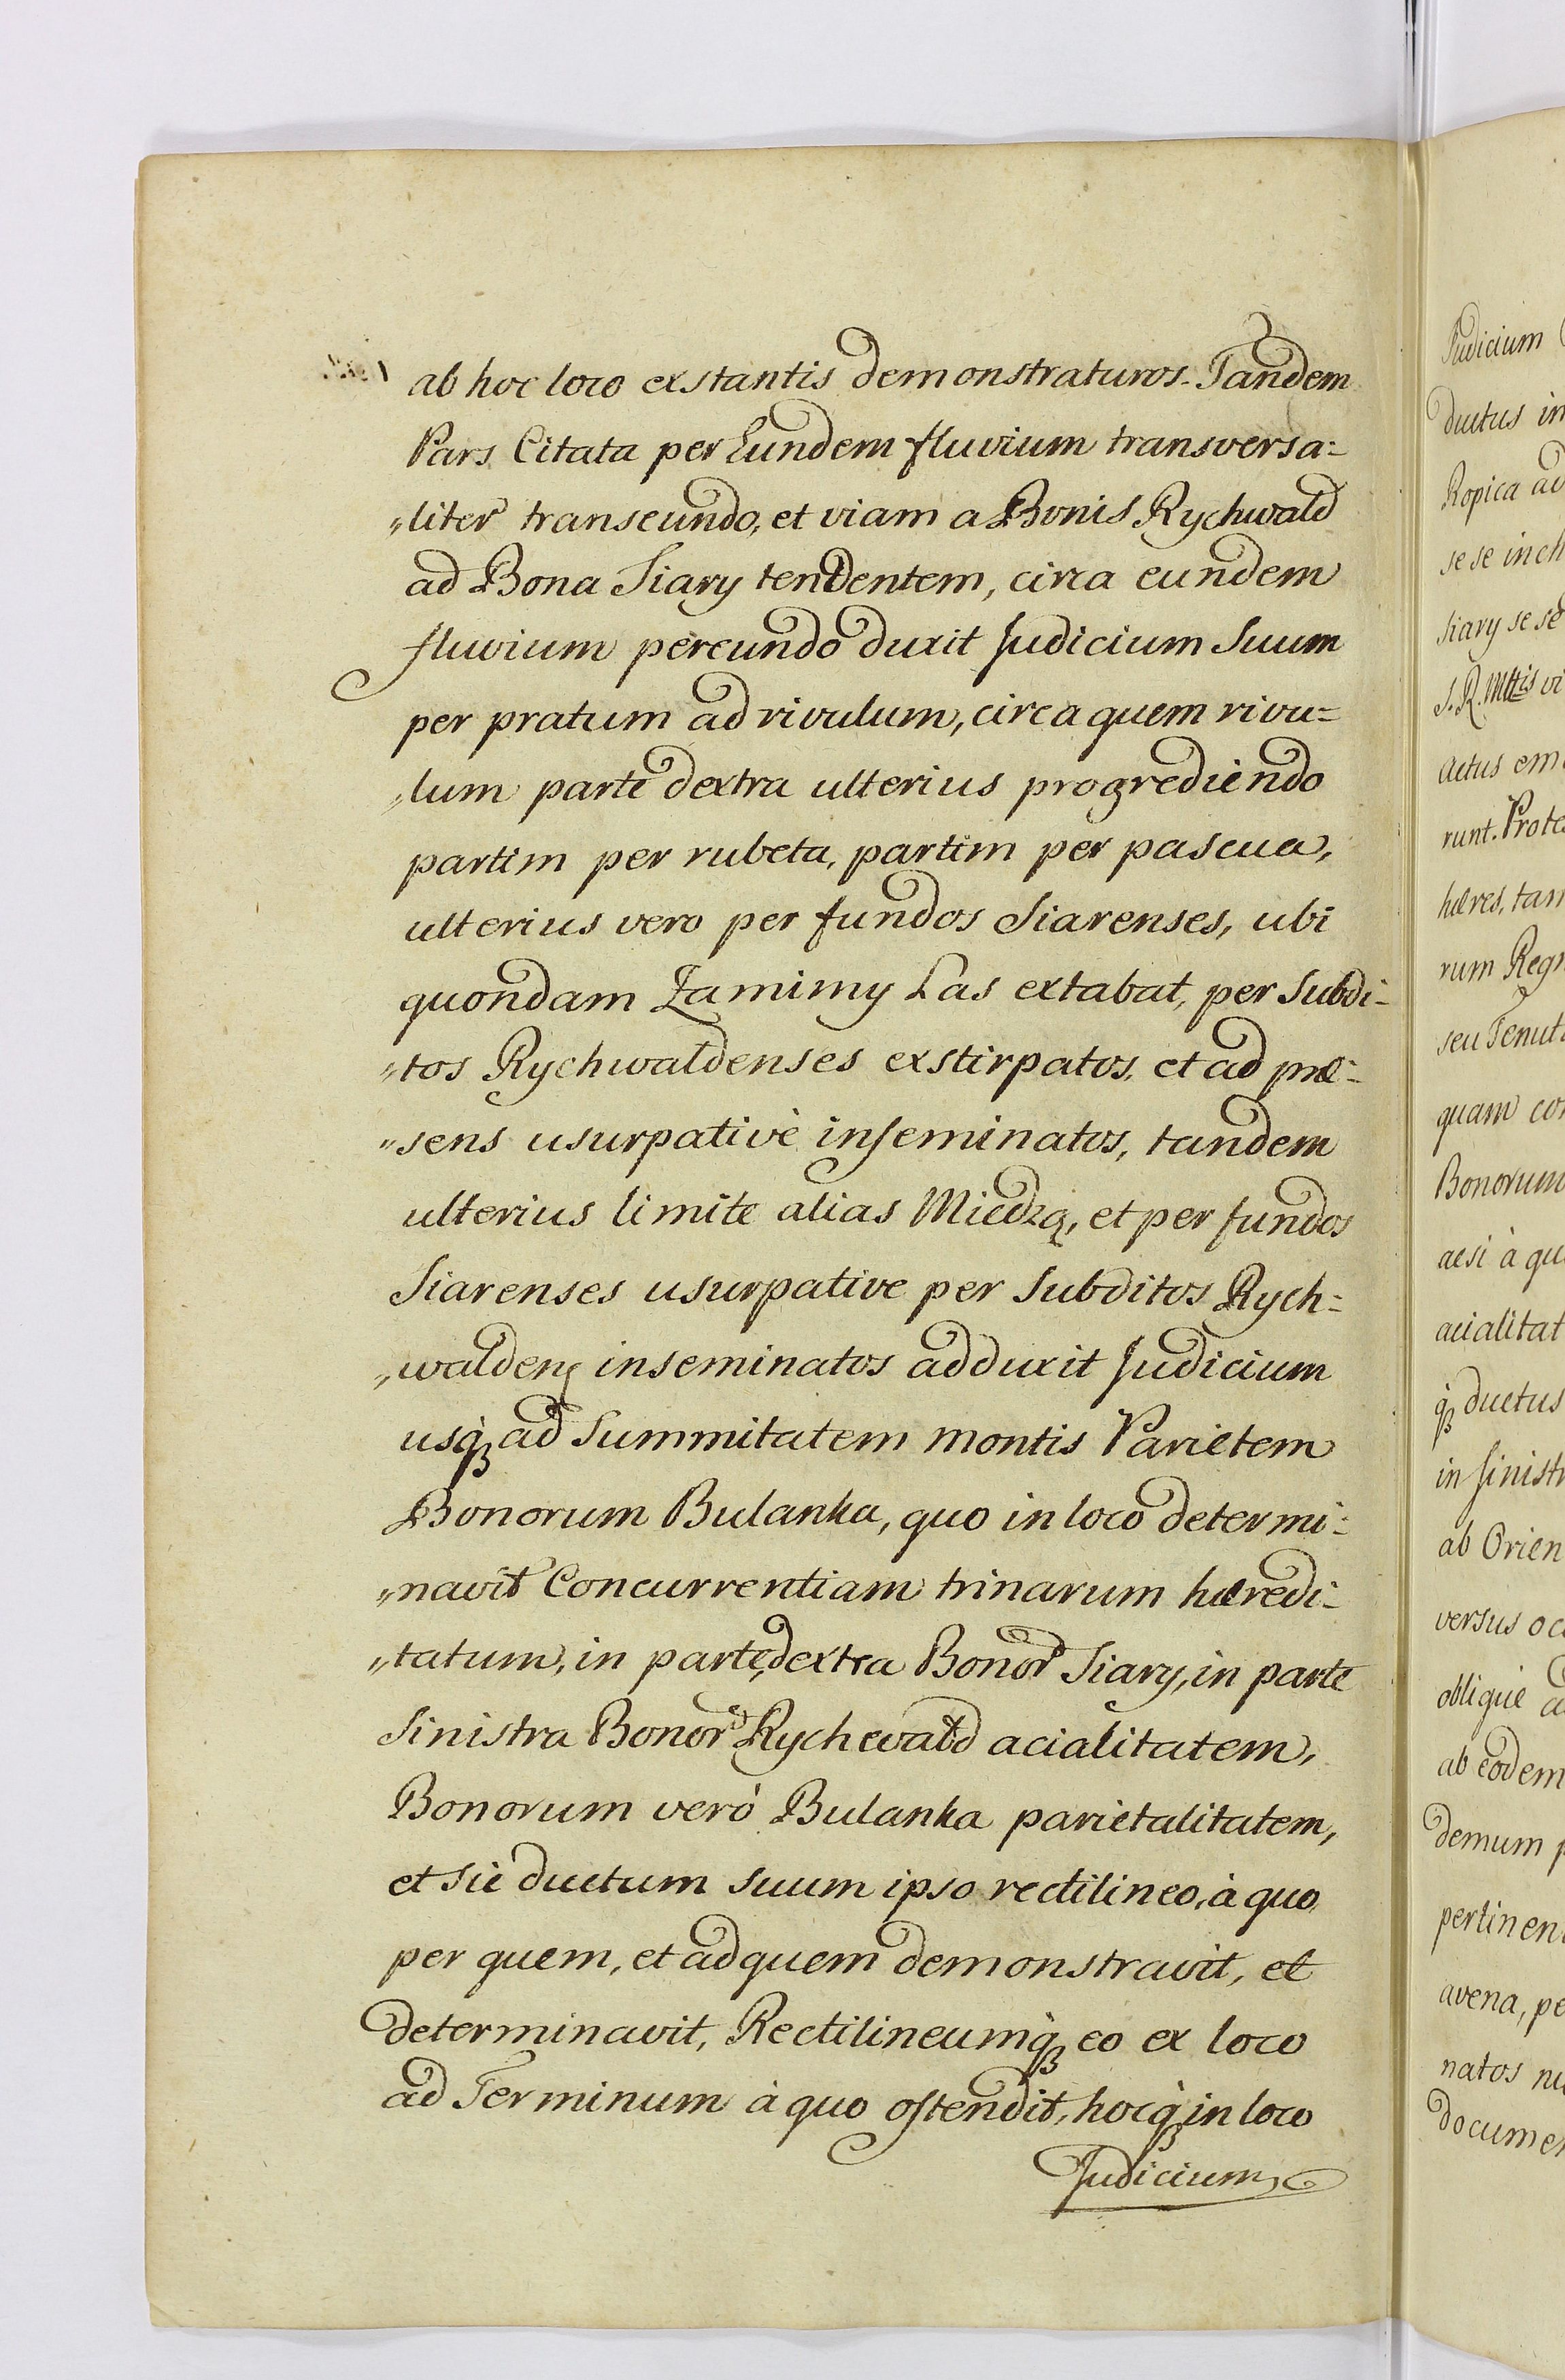 ab hoc loco exstantis demonstraturos. Tandem
Pars Citata per Eundem fluvium transversa=
„liter transeundo, et viam a Bonis Rychwald
ad Bona Siary tendentem, circa eundem
fluvium pereundo duxit Judicium Suum
per pratum ad rivulum, circa quem rivu=
„lum parte dextra ulterius progrediendo
partim per rubeta, partim per pascua,
ulterius vero per fundos Siarenses, ubi
quondam Zamimy Las extabat, per Subdi=
„tos Rychwaldenses exstirpatos, et ad præ=
„sens usurpativè inseminatos, tandem
ulterius limite alias Miedzą, et per fundos
Siarenses usurpative per Subditos Rych=
„walden inseminatos adduxit Judicium
usq̀ ad Summitatem montis Parietem
Bonorum Bulanka, quo in loco determi=
„navit Concurrentiam trinarum hæredi=
„tatum, in parte dextra Bonor Siary, in parte
Sinistra Bonor Rychwald acialitatem,
Bonorum verò Bulanka parietalitatem,
et sic ductum suum ipso rectilineo, à quo
per quem, et ad quem demonstravit, et
determinavit, Rectilineumq̀ eo ex loco
ad Terminum à quo ostendit, hocq̀ in loco
Judicium
Judicium
ductus in
Ropica ad
sese inch
Siary se se
S. R. Mttis vi
actus em
runt. Prote
hæres, tam
rum Regn
seu Tenut
quam con
Bonorum
aesi à qu
acialitat
q̀ ductus
in sinistr
ab Orien
versus oc
obliquè a
ab eodem
demum p
pertinen
avena, pe
natos nu
documen